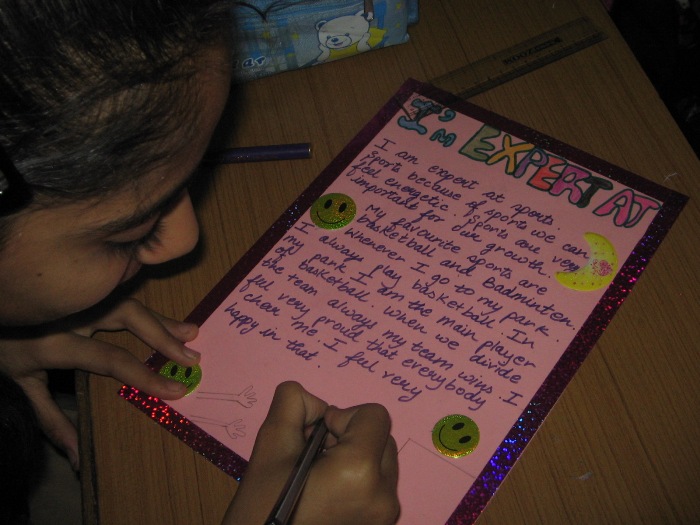 I'm EXPERT AT
I am expert at sports.
Sports because of sports we can
feel energetic. Sports are very
important for our growth.
My favourite sports are
basketball and badminten.
Whenever I go to my park.
I always play basketball. In
my park. I am the main player
of basketball. When we divide
the team always my team wins. I
ful very proud that everybody
chear me. I ful very
happy in that.